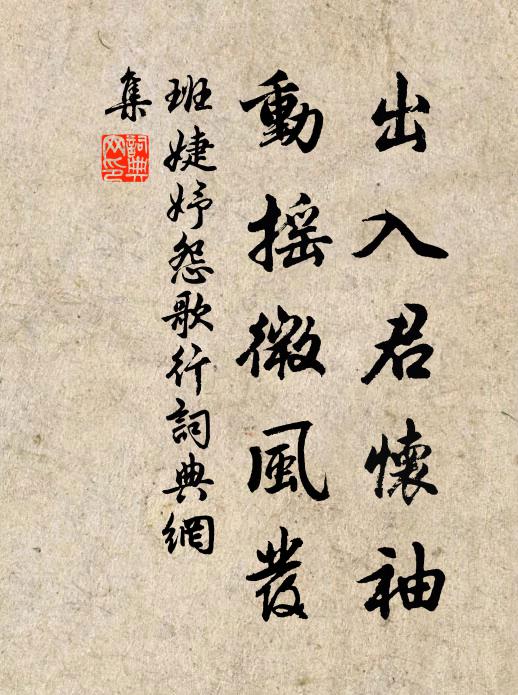 出入君懷袖
動搖微風發
班婕妤怨歌行詞典網
集
詞典
网印